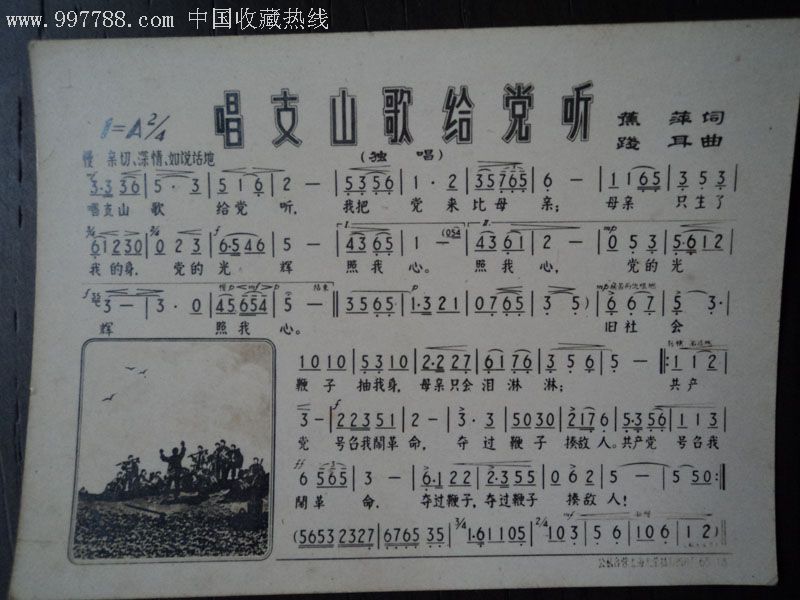 www.997788.com 中国收藏热线
唱支山歌给党听
1=A 2/4
蕉 萍 词
践 耳 曲
慢 亲切、深情、如说话地
(独 唱)
3·3 36 | 5·3 | 516 | 2 — | 5356 | 1·2 | 35765 | 6 — | 1165 | 353
唱支山 歌 给党 听, 我把 党 来比母 亲; 母亲 只生了
61230 | 023 | 6·546 | 5 — | 4365 | 1 — | 4361 | 2 — | 053 | 5·612
我的身, 党的光 辉 照我 心。 照我 心, 党的光
3 — | 3·0 | 45654 | 5 — ‖ 3565 | 1·321 | 0765 | 35) | 667 | 53·
辉 照我 心。 旧社 会
1010 | 5310 | 2·227 | 6176 | 356 | 5 — ‖: 112
鞭子 抽我身, 母亲只会 泪淋淋; 共产
3 — | 22351 | 2 — | 3·3 | 5030 | 2176 | 5·356 | 113
党 号召我鬧革 命, 夺过 鞭子 揍敌人。共产党 号召我
6 565 | 3 — | 6·122 | 2·355 | 062 | 5 — | 550 :‖
鬧革 命, 夺过鞭子, 夺过鞭子 揍敌人!
(5653 2327 | 6765 35 | 3/4 1·61105 | 2/4 103 | 56 | 106 | 12)